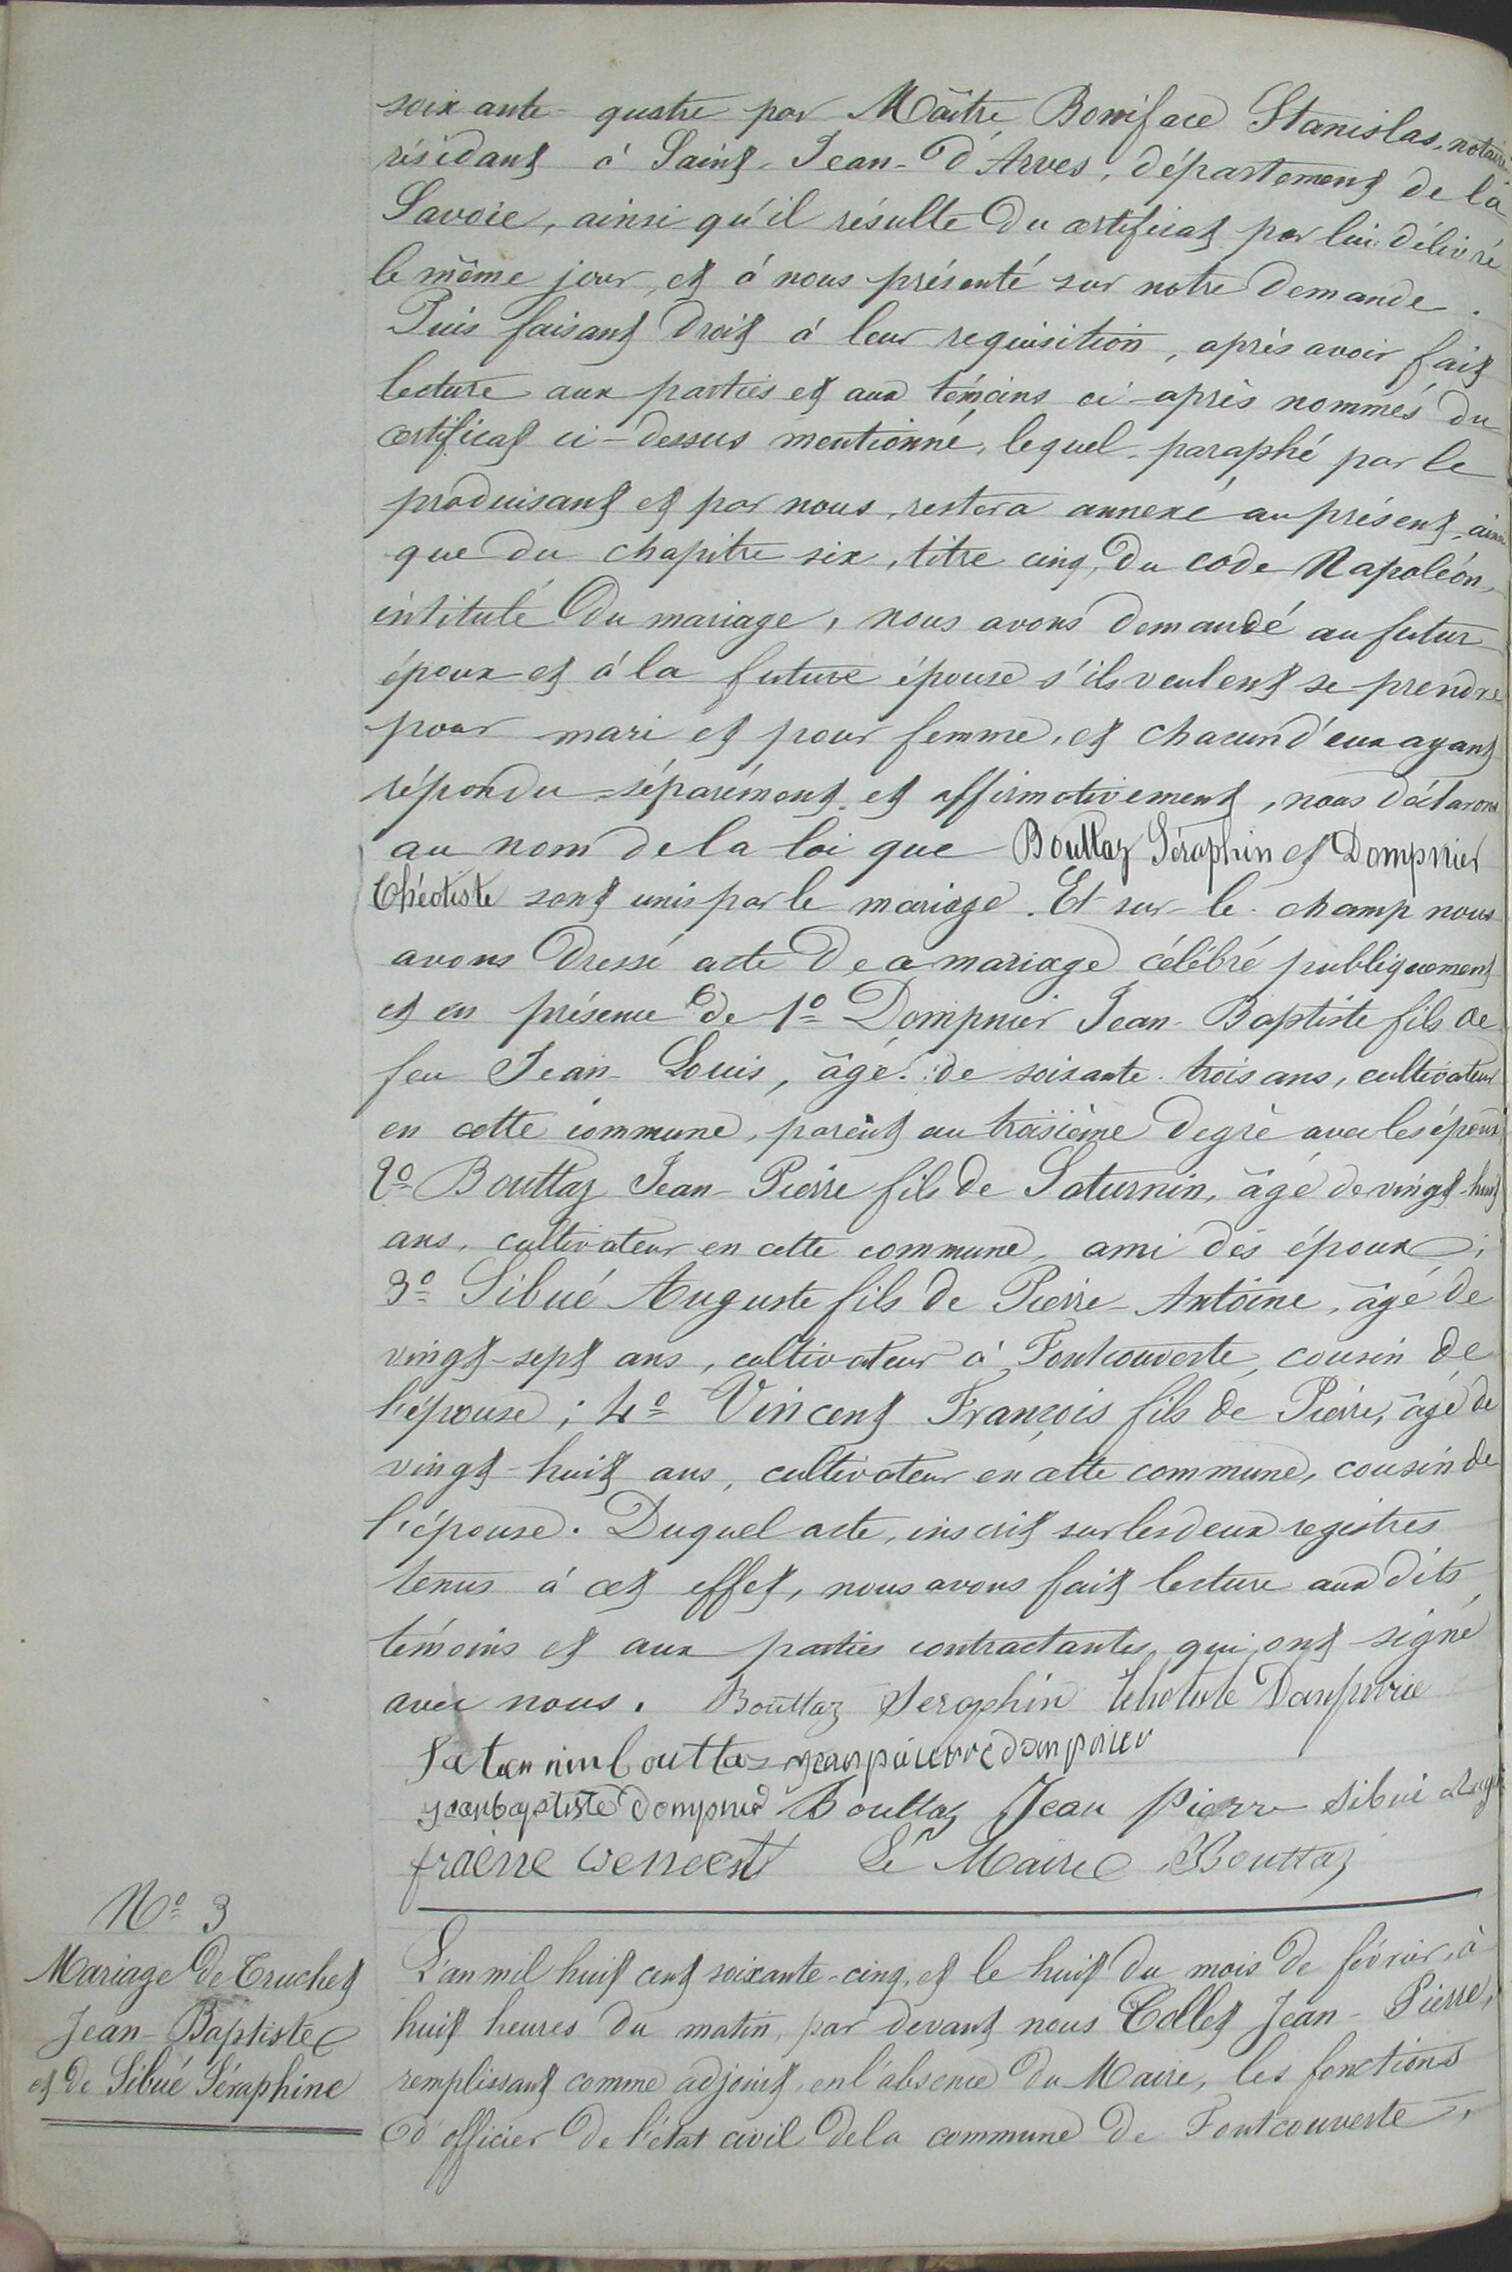 soixante-quatre par Maître Boniface Stanislas, notaire
résidant à Saint-Jean-d'Arves, département de la
Savoie, ainsi qu'il résulte du certificat par lui délivré
le même jour, et à nous présenté sur notre demande.
Puis faisant droit à leur requisition, après avoir fait
lecture aux parties et aux témoins ci-après nommés du
certificat ci-dessus mentionné, lequel paraphé par le
produisant et par nous, restera annexé au présent, ainsi
que du chapitre six, titre cinq, du code Napoléon,
intitulé Du mariage, nous avons demandé au futur
époux et à la future épouse s'ils veulent se prendre
pour mari et pour femme, et chacun d'eux ayant
répondu séparément et affirmativement, nous déclarons
au nom de la loi que Bouttaz Séraphin et Dompnier
Théotiste sont unis par le mariage. Et sur-le-champ nous
avons dressé acte de ce mariage célébré publiquement
et en présence de 1º Dompnier Jean-Baptiste fils de
feu Jean-Louis, âgé de soixante-trois ans, cultivateur
en cette commune, parent au troisième degré avec les époux
2º Bouttaz Jean-Pierre fils de Saturnin, âgé de vingt-huit
ans, cultivateur en cette commune, ami des époux;
3º Sibué Auguste fils de Pierre-Antoine, âgé de
vingt-sept ans, cultivateur à Fontcouverte, cousin de
l'épouse; 4º Vincent François fils de Pierre, âgé de
vingt-huit ans, cultivateur en cette commune, cousin de
l'épouse. Duquel acte, inscrit sur les deux registres
tenus à cet effet, nous avons fait lecture aux dits
témoins et aux parties contractantes, qui ont signé
avec nous. Bouttaz Seraphin
jean pierre dompnier
jean baptiste dompnier Bouttaz Jean Pierre Sibué
Le Maire Bouttaz
Nº 3
Mariage de Truchet
Jean-Baptiste
et de Sibué Séraphine
L'an mil huit cent soixante-cinq, et le huit du mois de février, à
huit heures du matin, par devant nous Collet Jean-Pierre,
remplissant comme adjoint, en l'absence du Maire, les fonctions
d'officier de l'état civil de la commune de Fontcouverte,